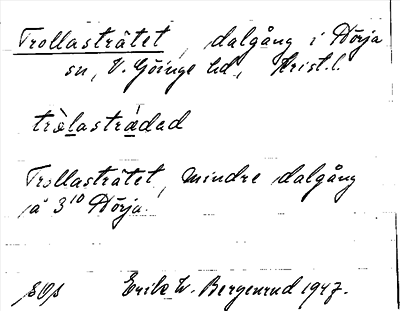 Trollasträtet, dalgång i Hörja
sn, V. Göinge hd, Krist. l.
tròlasträdad
Trollasträtet, mindre dalgång
å 3¹⁰ Hörja.
Erik W. Bergenrud 1947.